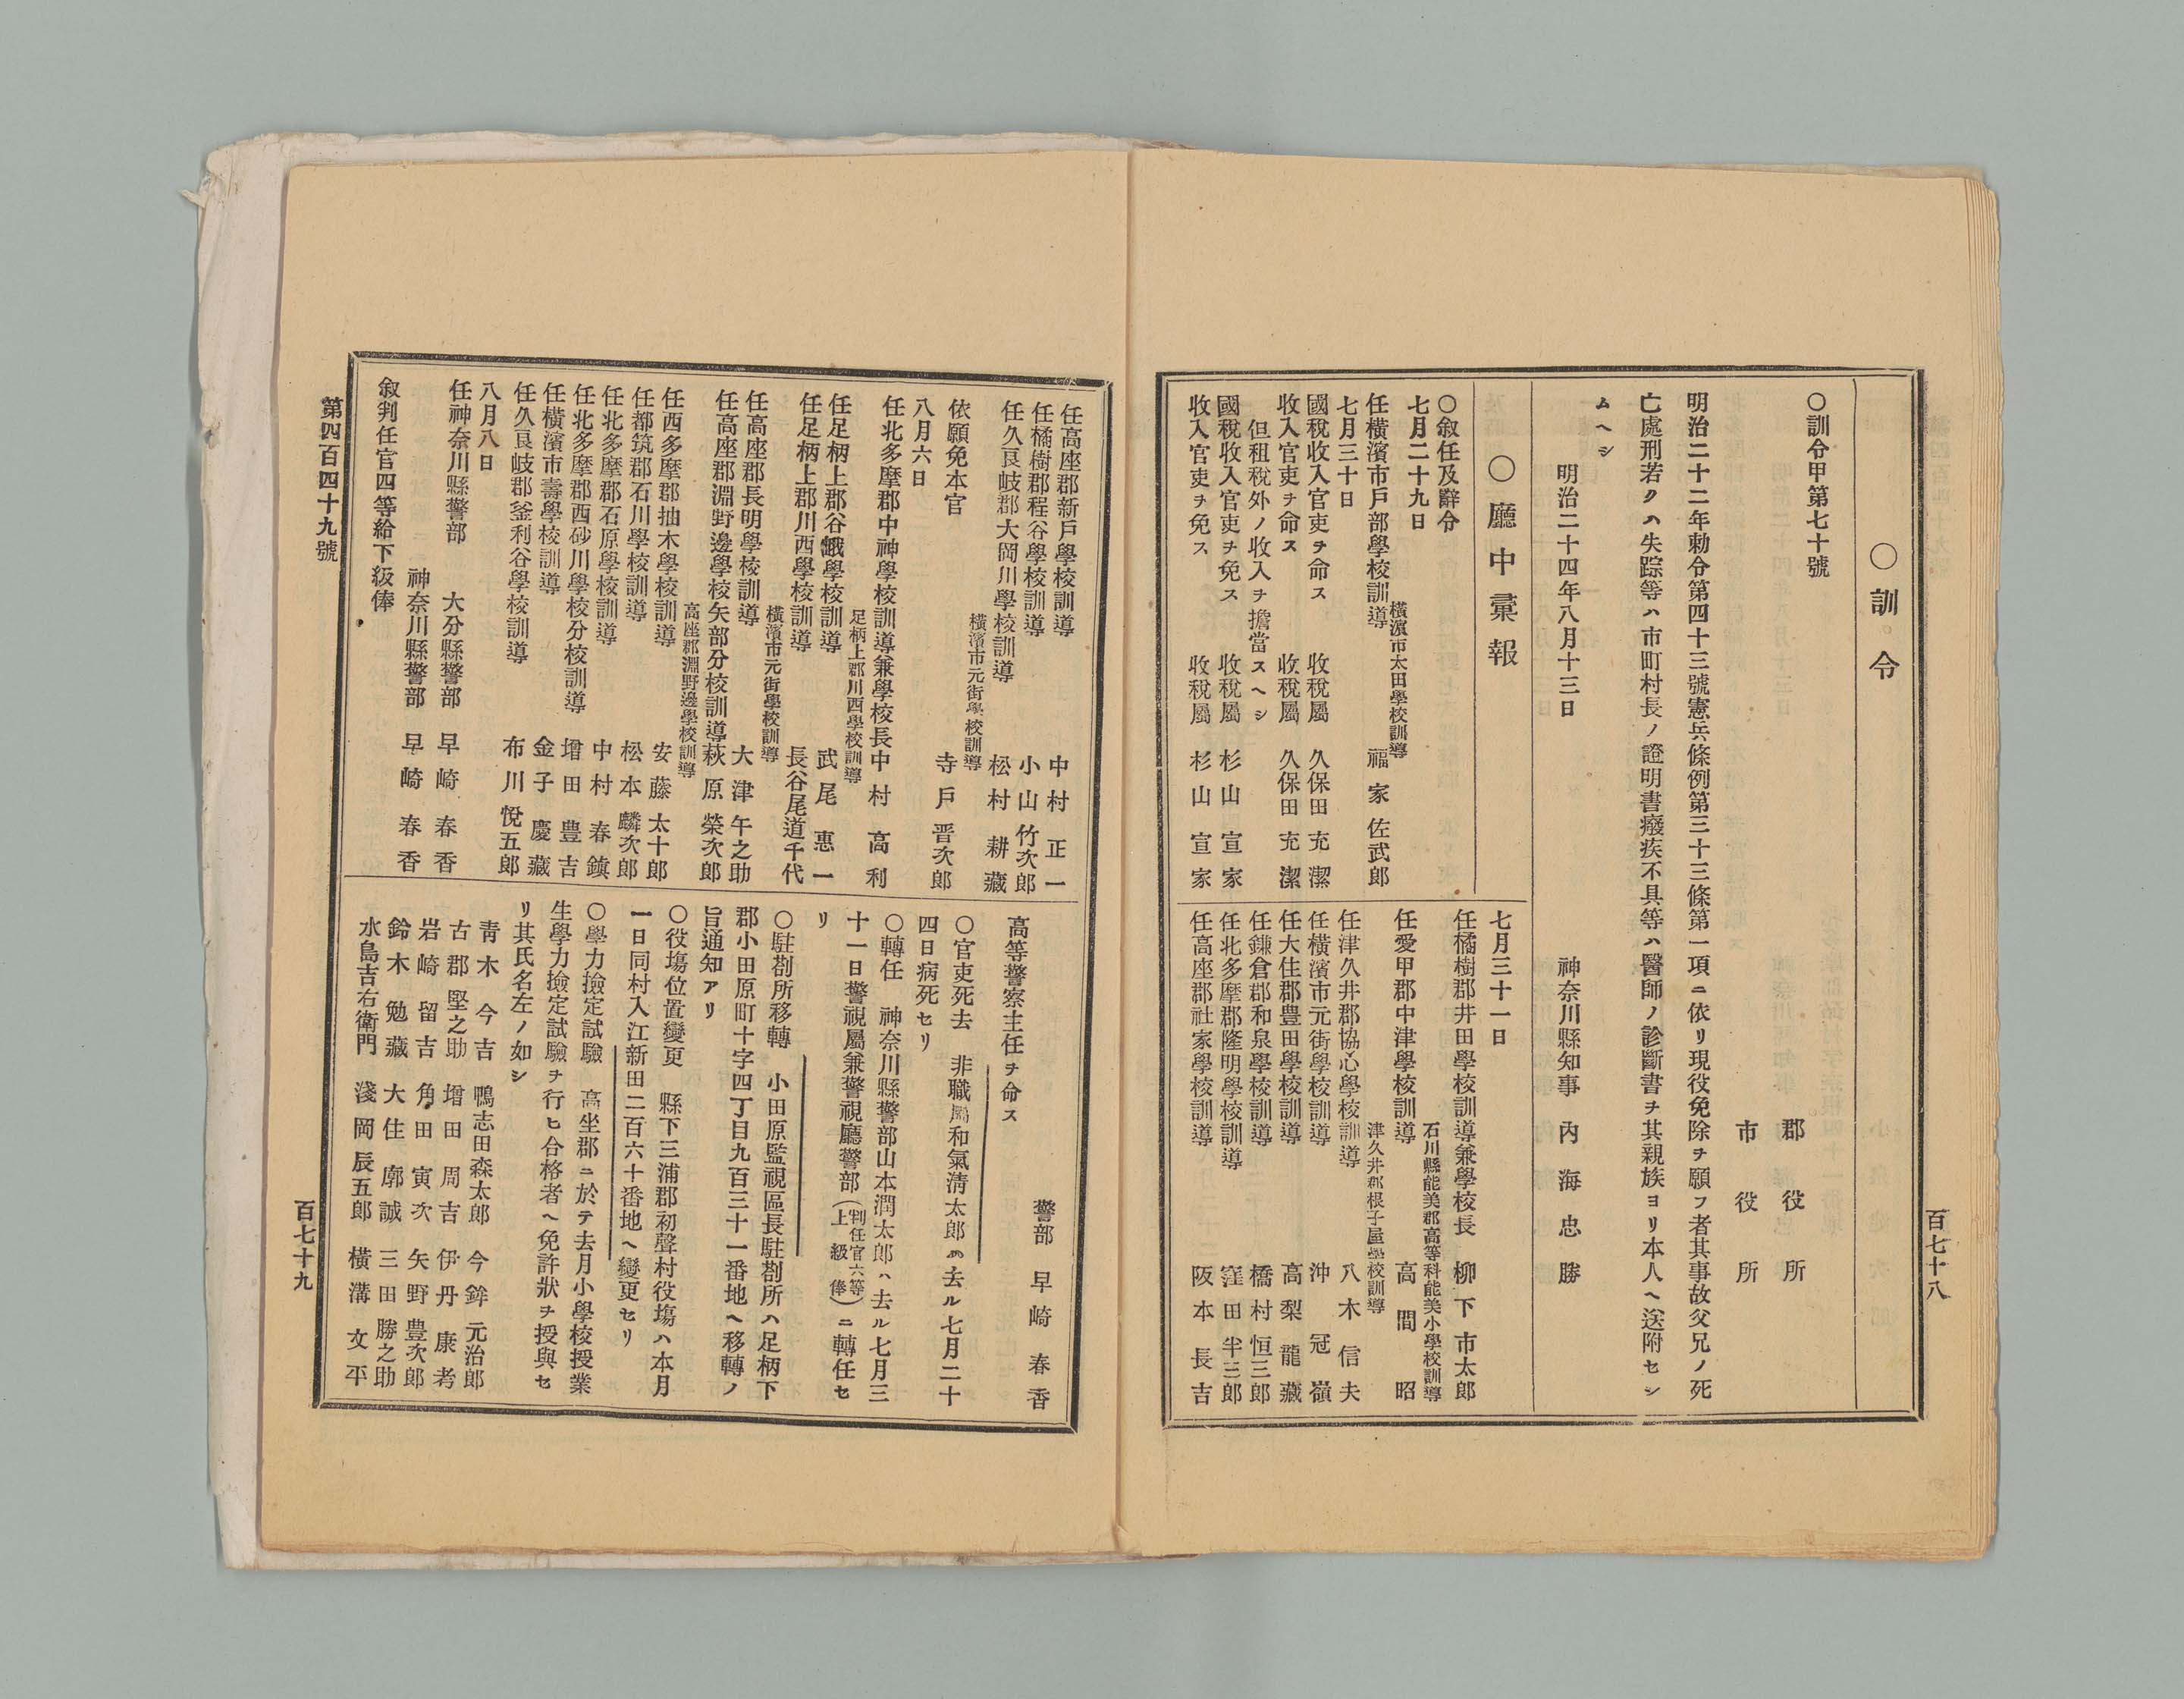 百七十八
〇訓令
〇訓令甲第七十號
郡役所
市役所
明治二十二年勅令第四十三號憲兵條例第三十三條第一項ニ依リ現役免除ヲ願フ者其事故父兄ノ死
亡處刑若クハ失踪等ハ市町村長ノ證明書癈疾不具等ハ醫師ノ診斷書ヲ其親族ヨリ本人ヘ送附セシ
ムヘシ
明治二十四年八月十三日
神奈川縣知事 內海忠勝
〇廳中彙報
〇敍任及辭令
七月二十九日
橫濱市太田學校訓導
任橫濱市戶部學校訓導 福家佐武郎
七月三十日
國稅收入官吏ヲ命ス 收稅屬 久保田充潔
收入官吏ヲ命ス 收稅屬 久保田充潔
但租稅外ノ收入ヲ擔當スヘシ
國稅收入官吏ヲ免ス 收稅屬 杉山宣家
收入官吏ヲ免ス 收稅屬 杉山宣家
七月三十一日
任橘樹郡井田學校訓導兼學校長 柳下市太郎
石川縣能美郡高等科能美小學校訓導
任愛甲郡中津學校訓導 高間昭
津久井郡根子屋學校訓導
任津久井郡協心學校訓導 八木信夫
任橫濱市元街學校訓導 沖冠嶺
任大住郡豊田學校訓導 高梨龍藏
任鎌倉郡和泉學校訓導 橋村恒三郎
任北多摩郡隆明學校訓導 窪田半三郎
任高座郡社家學校訓導 阪本長吉
任高座郡新戶學校訓導 中村正一
任橘樹郡程谷學校訓導 小山竹次郎
任久良岐郡大岡川學校訓導 松村耕藏
橫濱市元街學校訓導
依願免本官 寺戶晋次郎
八月六日
任北多摩郡中神學校訓導兼學校長 中村高利
足柄上郡川西學校訓導
任足柄上郡谷峨學校訓導 武尾惠一
任足柄上郡川西學校訓導 長谷尾道千代
橫濱市元街學校訓導
任高座郡長明學校訓導 大津午之助
任高座郡淵野邊學校矢部分校訓導 萩原榮次郎
高座郡淵野邊學校訓導
任西多摩郡抽木學校訓導 安藤太十郎
任都筑郡石川學校訓導 松本麟次郎
任北多摩郡石原學校訓導 中村春鎭
任北多摩郡西砂川學校分校訓導 增田豊吉
任橫濱市壽學校訓導 金子慶藏
任久良岐郡釜利谷學校訓導 布川悅五郎
八月八日
任神奈川縣警部 大分縣警部 早崎春香
神奈川縣警部 早崎春香
敍判任官四等給下級俸
警部 早崎春香
高等警察主任ヲ命ス
〇官吏死去 非職屬和氣淸太郎ハ去ル七月二十
四日病死セリ
〇轉任 神奈川縣警部山本潤太郎ハ去ル七月三
十一日警視屬兼警視廳警部(判任官六等上級俸)ニ轉任セ
リ
〇駐剳所移轉 小田原監視區長駐剳所ハ足柄下
郡小田原町十字四丁目九百三十一番地ヘ移轉ノ
旨通知アリ
〇役塲位置變更 縣下三浦郡初聲村役塲ハ本月
一日同村入江新田二百六十番地ヘ變更セリ
〇學力撿定試驗 高坐郡ニ於テ去月小學校授業
生學力撿定試驗ヲ行ヒ合格者ヘ免許狀ヲ授與セ
リ其氏名左ノ如シ
靑木今吉 鴨志田森太郎 今鉾元治郎
古郡堅之助 增田周吉 伊丹康考
岩崎留吉 角田寅次 矢野豊次郎
鈴木勉藏 大住廓誠 三田勝之助
水島吉右衞門 淺岡辰五郎 橫溝文平
第四百四十九號
百七十九